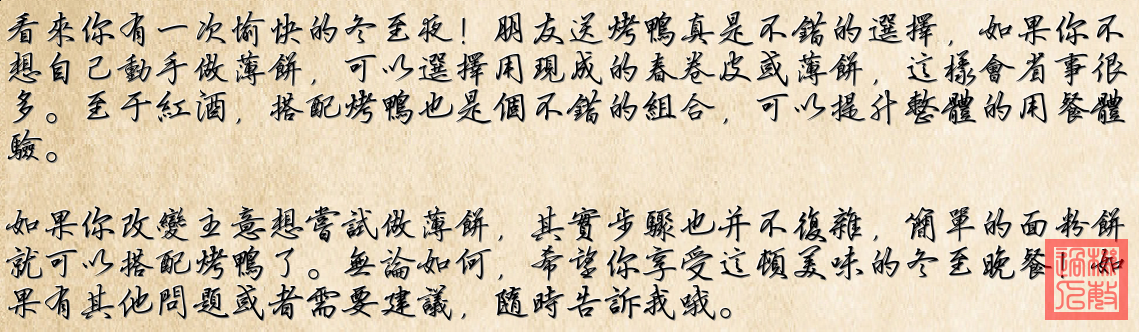 看來你有一次愉快的冬至夜！朋友送烤鴨真是不錯的選擇，如果你不
想自己動手做薄餅，可以選擇用現成的春卷皮或薄餅，這樣會省事很
多。至于紅酒，搭配烤鴨也是個不錯的組合，可以提升整體的用餐體
驗。
如果你改變主意想嘗試做薄餅，其實步驟也并不復雜，簡單的面粉餅
就可以搭配烤鴨了。無論如何，希望你享受這頓美味的冬至晚餐！如
果有其他問題或者需要建議，隨時告訴我哦。